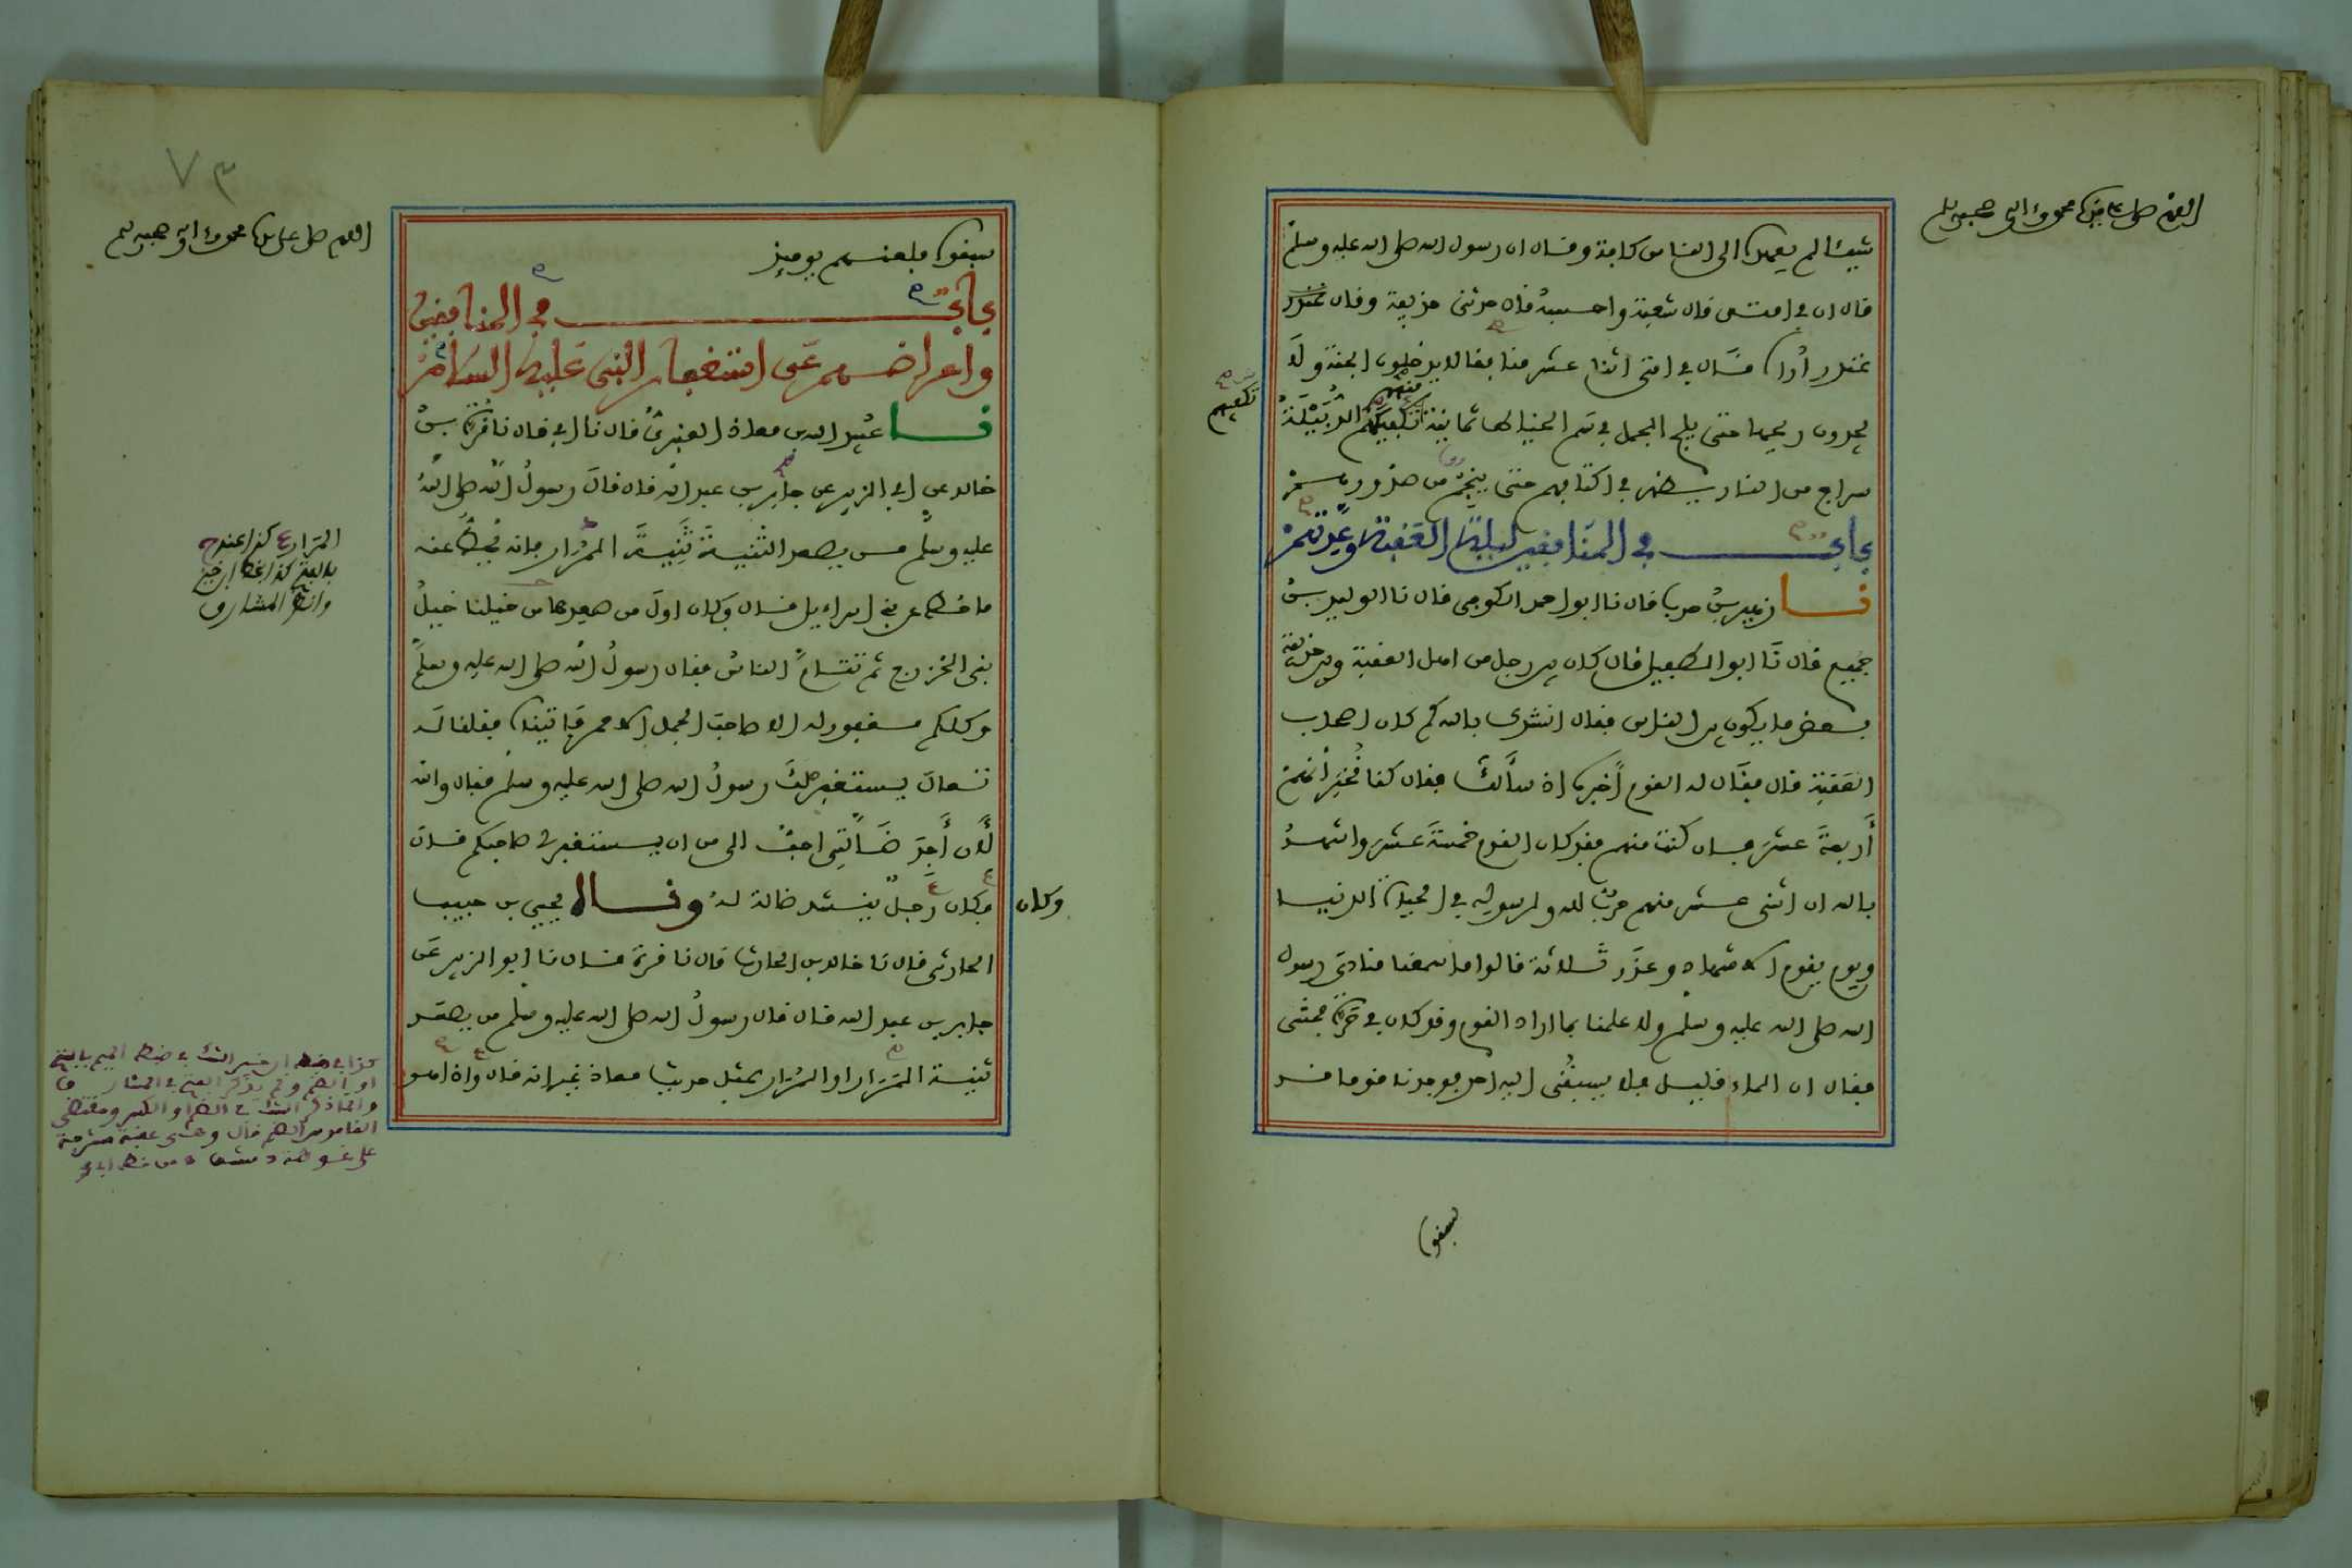 اللهم صل على سيدنا محمد وءاله وصحبه وسلم
شيئا لم يعهده الى الناس كافة وقال ان رسول الله صلى الله عليه وسلم
قال ان في امتى قال شعبة واحسبه قال حدثنى حذيفة وقال غندر
غندر أراه قال في امتى اثنا عشر منافقا لا يدخلون الجنة ولا
يجدون ريحها حتى يلج الجمل في سم الخياط ثمانية منهم تكفيكهم الدبيلة
تكفيهم
سراج من النار يظهر في اكتافهم حتى ينجم من صدورهم
باب في المنافقين ليلة العقبة وعدتهم
نا زهير بن حرب قال نا ابو احمد الكوفي قال نا الوليد بن
جميع قال نا ابو الطفيل قال كان بين رجل من اهل العقبة وبين حذيفة
بعض ما يكون بين الناس فقال انشدك بالله كم كان اصحاب
العقبة قال فقال له القوم أخبره اذ سألك فقال كنا نخبر أنهم
أربعة عشر فان كنت منهم فقد كان القوم خمسة عشر واشهد
بالله ان اثنى عشر منهم حرب لله ولرسوله في الحياة الدنيا
ويوم يقوم الاشهاد وعذر ثلاثة قالوا ما سمعنا منادي رسول
الله صلى الله عليه وسلم ولا علمنا بما اراد القوم وقد كان في حرة فمشى
فقال ان الماء قليل فلا يسبقنى اليه احد فوجد قوما قد
سبقوا
٧٣
اللهم صل على سيدنا محمد وءاله وصحبه وسلم
سبقوا فلعنهم يومئذ
باب في المنافقين
واعراضهم عن استغفار النبي عليه السلام
نا عبيد الله بن معاذ العنبري قال نا ابي قال نا قرة بن
خالد عن ابي الزبير عن جابر بن عبد الله قال قال رسول الله صلى الله
عليه وسلم من يصعد الثنية ثنية المرار فانه يحط عنه
المرار كذا عند
وانظر المشارق
ما حط عن بني اسراءيل قال وكان اول من صعدها من خيلنا خيل
بنى الخزرج ثم تتام الناس فقال رسول الله صلى الله عليه وسلم
وكلكم مغفور له الا صاحب الجمل الاحمر فاتيناه فقلنا له
تعال يستغفر لك رسول الله صلى الله عليه وسلم فقال والله
لأن أجد ضالتي احب الى من ان يستغفر لى صاحبكم قال
فكان رجل ينشد ضالة له وقال يحيى بن حبيب
وكان
الحارثى قال نا خالد بن الحارث قال نا قرة قال نا ابو الزبير عن
جابر بن عبد الله قال قال رسول الله صلى الله عليه وسلم من يصعد
ثنية المرار او المرار بمثل حديث معاذ غير انه قال واذا هو